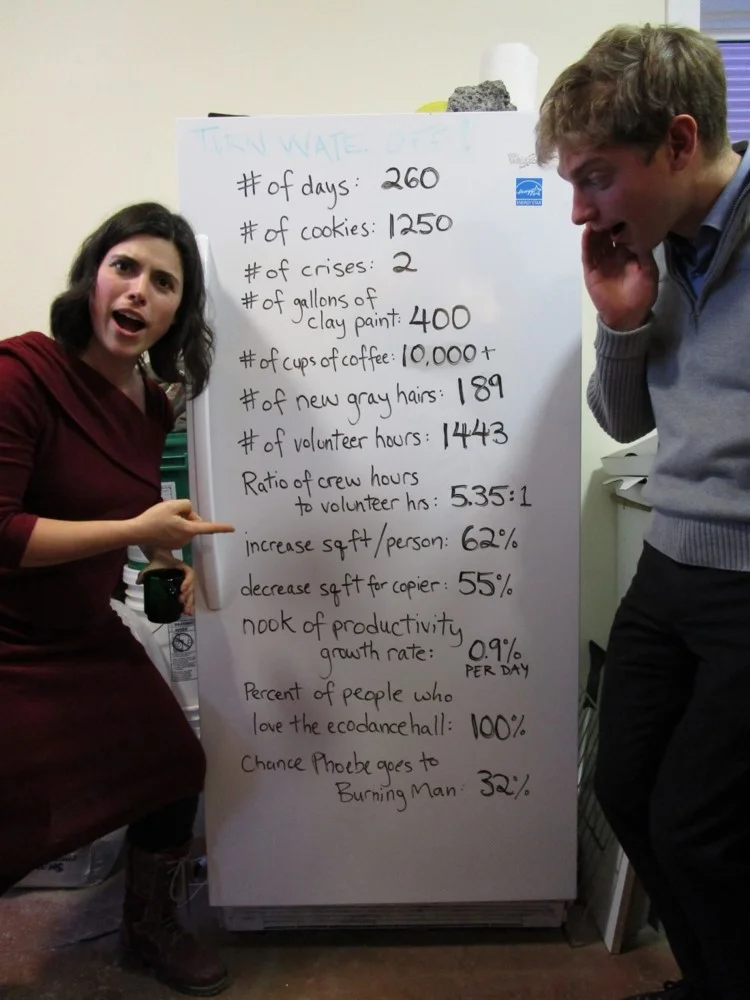 TURN WATE OFF!
# of days: 260
# of cookies: 1250
# of crises: 2
# of gallons of
clay paint: 400
# of cups of coffee: 10,000+
# of new gray hairs: 189
# of volunteer hours: 1443
Ratio of crew hours
to volunteer hrs: 5.35:1
increase sqft/person: 62%
decrease sqft for copier: 55%
nook of productivity
growth rate: 0.9%
PER DAY
Percent of people who
love the ecodancehall: 100%
Chance Phoebe goes to
Burning Man: 32%
ENERGY STAR